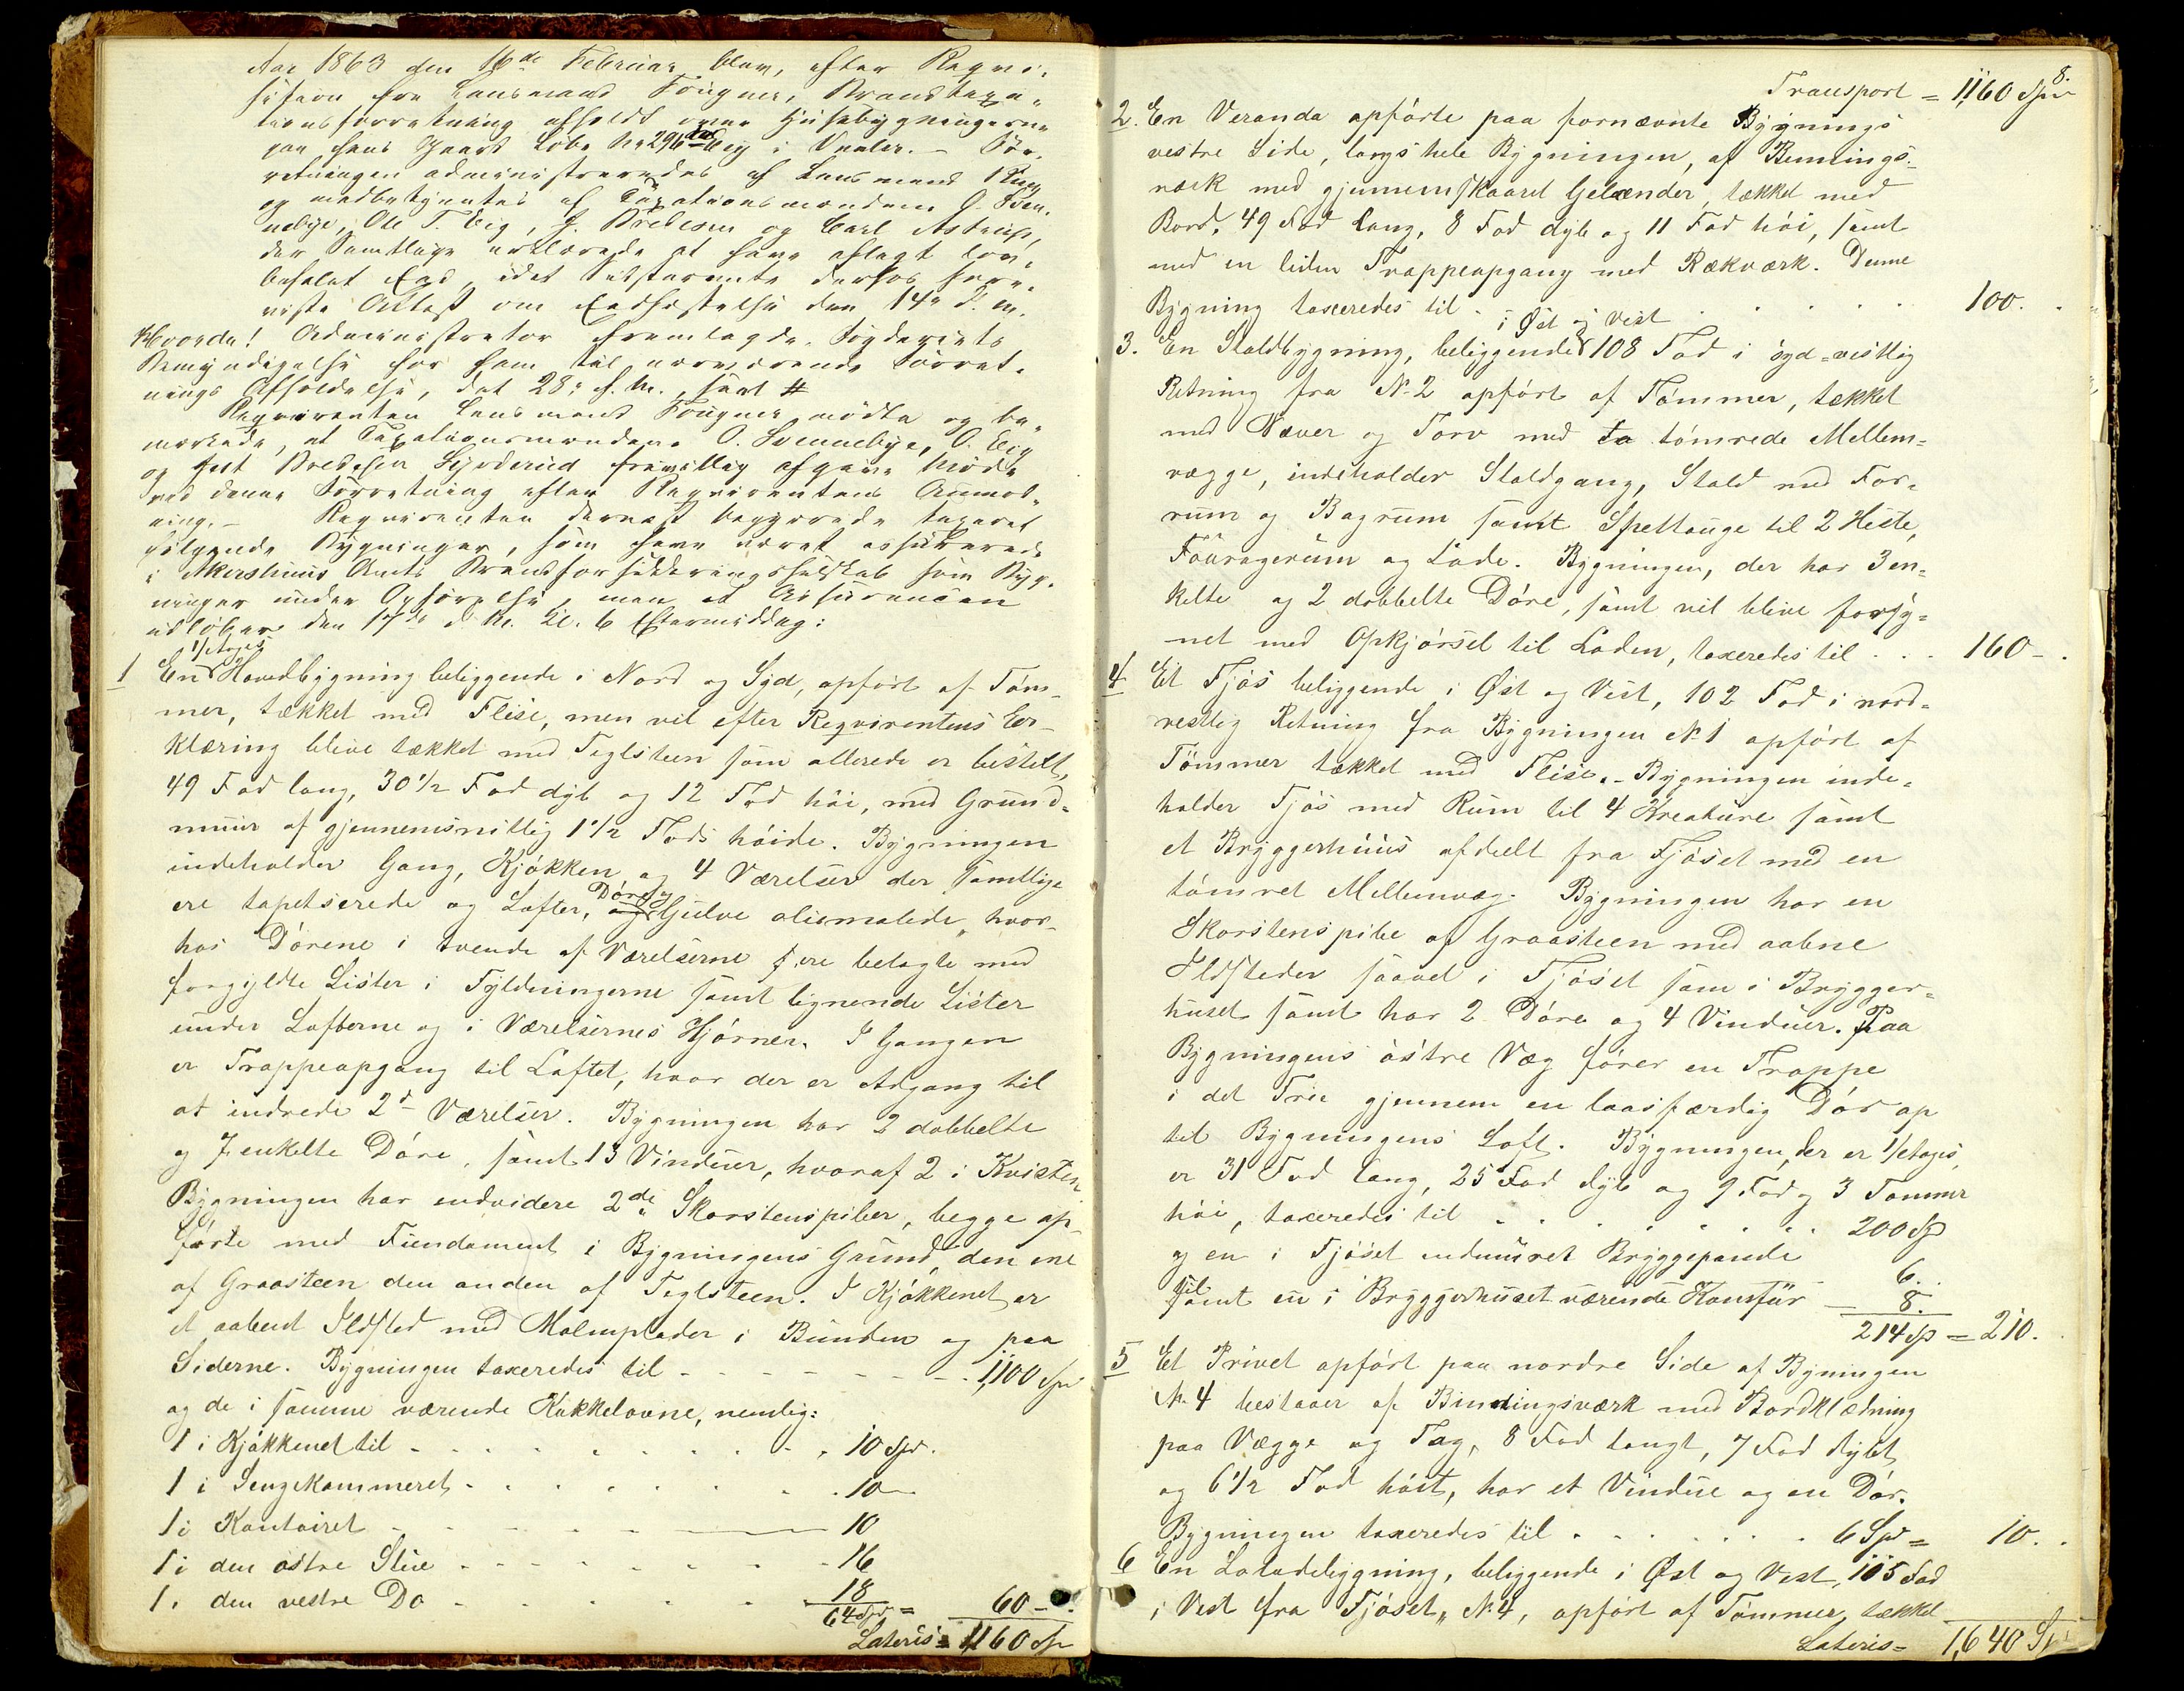 Aar 1863 den 16de Februar blev, efter Reqvi-
sition fra Lensmand Fougner, Brandtaxa-
tionsforretning afholdt over Huusebygningerne
paa hans Gaard Løbe No 296 Eeg i Vaaler. – For-
retningen administreredes af Lensmand
og medbetjentes af Taxationsmændene O. Sven-
nebye, Ole T. Eeg, J. Bredesen og Carl Astrup,
der Samtlige erklærede at have aflagt lov-
befalet Eed, idet Sidstnævnte derhos fore-
viste Attest om Eedfæstelse den 14de d. M.
Hvorda! Administrator fremlagde Fogderiets
Bemyndigelse for ham til nærværende Forret-
nings Afholdelse, dat 28de f. M., saal #
Reqvirenten Lensmand Fougner mødte og be-
mærkede, at Taxationsmændene O. Svennebye, O. Eeg
og Just Bredesen Sjorderud frivillig afgave Møde
ved denne Forretning efter Reqvirentens Anmod-
ning. – Reqvirenten dernæst begjærede taxeret
følgende Bygninger, som have været assurerede
i Akershuus Amts Brandforsikkringsselskab som Byg-
ninger under Opførelse, men at Assurancen
udløber den 17de d. M. Kl. 6 Eftermiddag:
1 En 1/Etages Hovedbygning beliggende i Nord og Syd, opført af Tøm-
mer, tækket med Flise, men vil efter Reqvirentens Er-
klæring blive tækket med Teglsteen som allerede er bestilt,
49 Fod lang, 30 1/2 Fod dyb og 12 Fod höi, med Grund-
muur af gjennemsnitlig 1 1/2 Fods höide. Bygningen
indeholder Gang, Kjøkken og 4 Værelser der samtlige
ere tapetserede og Lofter, Döre og Gulve oliemalede, hvor-
hos Dørene i tvende af Værelserne ere belagte med
forgyldte Lister i Fyldningerne samt lignende Lister
under Lofterne og i Værelsernes Hjørner. I Gangen
er Trappeopgang til Loftet, hvor der er Adgang til
at indrede 2de Værelser. Bygningen har 2 dobbelte
og 7 enkelte Døre, samt 13 Vinduer, hvoraf 2 i Kvisten
Bygningen har endvidere 2de Skorstenspiber, begge op-
førte med Fundament i Bygningens Grund, den ene
af Graasteen den anden af Teglsteen. I Kjøkkenet er
et aabent Ildsted med Malmplader i Bunden og paa
Siderne. Bygningen taxeredes til - - - - - - - 1,100 Spd
og de i samme værende Kakkelovne, nemlig:
1 i Kjøkkenet til - - - - - - - - 10 Spd.
1 i Sengekammeret - - - - - - - 10
1 i Kontoiret - - - - - 10
1 i den østre Stue - - - - - - - 16
1 i den vestre Do - - - - - - 18
64 Spd = 60 - .
Lateris = 1160 Sp
8.
Transport = 1,160 Spd
2. En Veranda opførte paa fornævnte Bygnings
vestre Side, langs hele Bygningen, af Bindings-
værk med gjennemskaaret Gelænder, tækket med
Bord, 49 Fod lang, 8 Fod dyb og 11 Fod höi, samt
med en liden Trappeopgang med Rækværk. Denne
Bygning taxeredes til . . . . . . . 100. .
i Øst og Vest
3. En Staldbygning, beliggende 108 Fod i syd-vestlig
Retning fra No 2 opført af Tømmer, tækket
med Næver og Torv med to tømrede Mellem-
vægge, indeholder Staldgang, Stald med For-
rum og Bagrum samt Speltauge til 2 Heste,
Fouragerum og Lade. Bygningen, der har 3 en-
kelte og 2 dobbelte Døre, samt vil blive forsy-
net med Opkjørsel til Laden, taxeredes til . . . 160 - .
4 Et Fjøs beliggende i Øst og Vest, 102 Fod i nord-
vestlig Retning fra Bygningen No 1 opført af
Tømmer tækket med Flise. - Bygningen inde-
holder Fjøs med Rum til 4 Kreature samt
et Bryggerhuus afdeelt fra Fjøset med en
tømret Mellemvæg. Bygningen har en
Skorstenspibe af Graasteen med aabne
Ildsteder saavel i Fjøset som i Brygger-
huset samt har 2 Døre og 4 Vinduer. Paa
Bygningens østre Væg fører en Trappe
i det Frie gjennem en laasfærdig Dør op
til Bygningens Loft. Bygningen, der er 1/etages,
er 31 Fod lang, 25 Fod dyb og 9 Fod og 3 Tommer
höi, taxeredes til . . . . . . . . 200 Sp
og en i Fjøset indmuret Bryggepande
til 6.
samt en i Bryggerhuset værende Komfür - 8.
214 Sp = 210.
5 Et Privet opført paa nordre Side af Bygningen
No. 4 bestaaer af Bindingsværk med Bordklædning
paa Vægge og Tag, 8 Fod langt, 7 Fod dybt
og 6 1/2 Fod höit, har et Vindue og en Dør.
Bygningen taxeredes til . . . . . . . 6 Spd = 10. .
6 En Laladebygning, beliggende i Øst og Vest, 105 Fod
i Vest fra Fjøset, No 4, opført af Tømmer, tækket
Lateris = 1,640 Sp